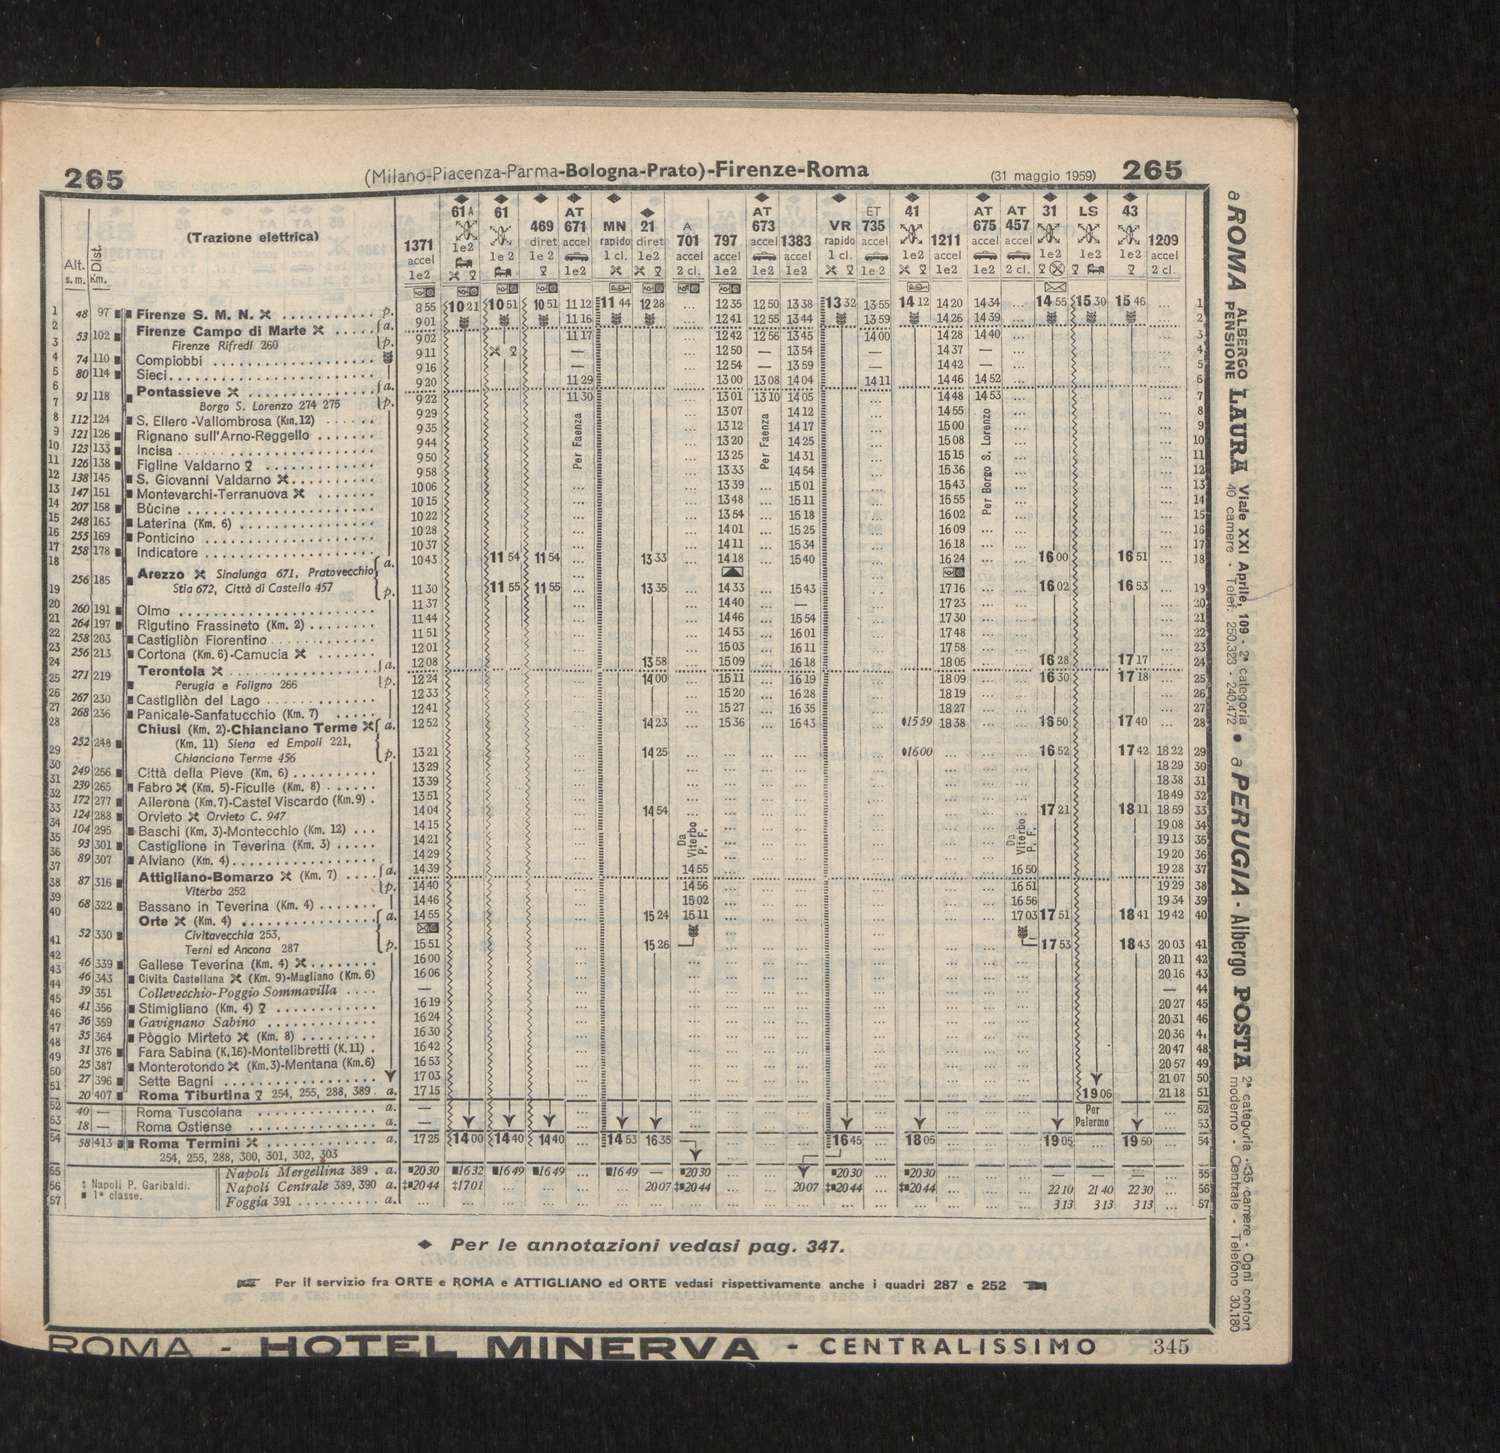 265 (Milano-Piacenza-Parma-Bologna-Prato)-Firenze-Roma (31 maggio 1959) 265
(Trazione elettrica)
Alt. s. m. Dist. Km.
1371 accel 1e2
61A 1e2
61 1e2
469 diret 1e2
AT 671 accel 1e2
MN rapido 1 cl.
21 diret 1e2
A 701 accel 2 cl.
797 accel 1e2
AT 673 accel 1e2
1383 accel 1e2
VR rapido 1 cl.
ET 735 accel 1e2
41
1211 accel 1e2
AT 675 accel 1e2
AT 457 accel 2 cl.
31 1e2
LS
43
1209 2 cl.
1 48 97 Firenze S. M. N. p. 8 55 10 21 10 51 10 51 11 12 11 44 12 28 ... 12 35 12 50 13 38 13 32 13 55 14 12 14 20 14 34 ... 14 55 15 30 15 46 ... 1
2 53 102 Firenze Campo di Marte a. 9 01 11 16 ... 12 41 12 55 13 44 13 59 14 26 14 39 ... 2
3 Firenze Rifredi 260 p. 9 02 11 17 ... 12 42 12 56 13 45 14 00 14 28 14 40 ... 3
4 74 110 Compiobbi 9 11 — 12 50 — 13 54 — 14 37 — 4
5 80 114 Sieci 9 16 — 12 54 — 13 59 — 14 42 — 5
6 91 118 Pontassieve a. 9 20 11 29 13 00 13 08 14 04 14 11 14 46 14 52 6
7 Borgo S. Lorenzo 274 275 p. 9 22 11 30 13 01 13 10 14 05 ... 14 48 14 53 7
8 112 124 S. Ellero-Vallombrosa (Km.12) 9 29 13 07 14 12 14 55 8
9 121 126 Rignano sull'Arno-Reggello 9 35 13 12 14 17 15 00 9
10 123 133 Incisa 9 44 13 20 14 25 15 08 10
11 126 138 Figline Valdarno 9 50 13 25 14 31 15 15 11
12 138 145 S. Giovanni Valdarno 9 58 13 33 14 54 15 36 12
13 147 151 Montevarchi-Terranuova 10 06 13 39 15 01 15 43 13
14 207 158 Bùcine 10 15 13 48 15 11 15 55 14
15 248 163 Laterina (Km. 6) 10 22 13 54 15 18 16 02 15
16 255 169 Ponticino 10 28 14 01 15 25 16 09 16
17 258 178 Indicatore 10 37 14 11 15 34 16 18 17
Per Faenza
Per Faenza
Per Borgo S. Lorenzo
18 256 185 Arezzo Sinalunga 671, Pratovecchio a. 10 43 11 54 11 54 13 33 14 18 15 40 16 24 16 00 16 51 18
19 Stia 672, Città di Castello 457 p. 11 30 11 55 11 55 13 35 14 33 15 43 17 16 16 02 16 53 19
20 260 191 Olmo 11 37 14 40 — 17 23 20
21 264 197 Rigutino Frassineto (Km. 2) 11 44 14 46 15 54 17 30 21
22 258 203 Castigliòn Fiorentino 11 51 14 53 16 01 17 48 22
23 256 213 Cortona (Km. 6)-Camucia 12 01 15 03 16 11 17 58 23
24 271 219 Terontola a. 12 08 13 58 15 09 16 18 18 05 16 28 17 17 24
25 Perugia e Foligno 266 p. 12 24 14 00 15 11 16 19 18 09 16 30 17 18 25
26 267 230 Castigliòn del Lago 12 33 15 20 16 28 18 19 26
27 268 236 Panicale-Sanfatucchio (Km. 7) 12 41 15 27 16 35 18 27 27
28 252 248 Chiusi (Km. 2)-Chianciano Terme a. 12 52 14 23 15 36 16 43 15 59 18 38 16 50 17 40 28
(Km. 11) Siena ed Empoli 221,
29 Chianciano Terme 456 p. 13 21 14 25 16 00 16 52 17 42 18 22 29
30 249 256 Città della Pieve (Km. 6) 13 29 18 29 30
31 239 265 Fabro (Km. 5)-Ficulle (Km. 8) 13 39 18 38 31
32 172 277 Allerona (Km.7)-Castel Viscardo (Km.9) 13 51 18 49 32
33 124 288 Orvieto Orvieto C. 947 14 04 14 54 17 21 18 11 18 59 33
34 104 295 Baschi (Km. 3)-Montecchio (Km. 12) 14 15 19 08 34
35 93 301 Castiglione in Teverina (Km. 3) 14 21 19 13 35
36 89 307 Alviano (Km. 4) 14 29 19 20 36
Da Viterbo P. F.
Da Viterbo P. F.
37 87 316 Attigliano-Bomarzo (Km. 7) a. 14 39 14 55 16 50 19 28 37
38 Viterbo 252 p. 14 40 14 56 16 51 19 29 38
39 68 322 Bassano in Teverina (Km. 4) 14 46 15 02 16 56 19 34 39
40 52 330 Orte (Km. 4) a. 14 55 15 24 15 11 17 03 17 51 18 41 19 42 40
Civitavecchia 253,
41 Terni ed Ancona 287 p. 15 51 15 26 17 53 18 43 20 03 41
42 46 339 Gallese Teverina (Km. 4) 16 00 20 11 42
43 46 343 Civita Castellana (Km. 9)-Magliano (Km. 6) 16 06 20 16 43
44 39 351 Collevecchio-Poggio Sommavilla — — 44
45 41 356 Stimigliano (Km. 4) 16 19 20 27 45
46 36 359 Gavignano Sabino 16 24 20 31 46
47 35 364 Pòggio Mirteto (Km. 8) 16 30 20 36
48 31 376 Fara Sabina (K.16)-Montelibretti (K.11) 16 42 20 47 48
49 25 387 Monterotondo (Km.3)-Mentana (Km.6) 16 53 20 57 49
50 27 396 Sette Bagni 17 03 21 07 50
51 20 407 Roma Tiburtina 254, 255, 288, 389 a. 17 15 19 06 21 18 51
52 40 — Roma Tuscolana a. — Per 52
53 18 — Roma Ostiense a. — Palermo 53
54 58 413 Roma Termini a. 17 25 14 00 14 40 14 40 ... 14 53 16 35 16 45 18 05 19 05 19 50 54
254, 255, 288, 300, 301, 302, 303
55 Napoli Mergellina 389 a. 20 30 16 32 16 49 16 49 ... 16 49 — 20 30 20 30 20 30 — — 55
56 ‡ Napoli P. Garibaldi. Napoli Centrale 389, 390 a. ‡20 44 ‡17 01 20 07 ‡20 44 20 07 ‡20 44 ‡20 44 22 10 21 40 22 30 56
57 ■ 1ª classe. Foggia 391 a. 3 13 3 13 3 13 57
◆ Per le annotazioni vedasi pag. 347.
Per il servizio fra ORTE e ROMA e ATTIGLIANO ed ORTE vedasi rispettivamente anche i quadri 287 e 252
ROMA - HOTEL MINERVA - CENTRALISSIMO 345
a ROMA ALBERGO PENSIONE LAURA Viale XXI Aprile, 109 - 2ª categoria 40 camere - Telef. 250.323 - 240.472 • a PERUGIA - Albergo POSTA 2ª categoria - 35 camere - Ogni confort moderno - Centrale - Telefono 30.180